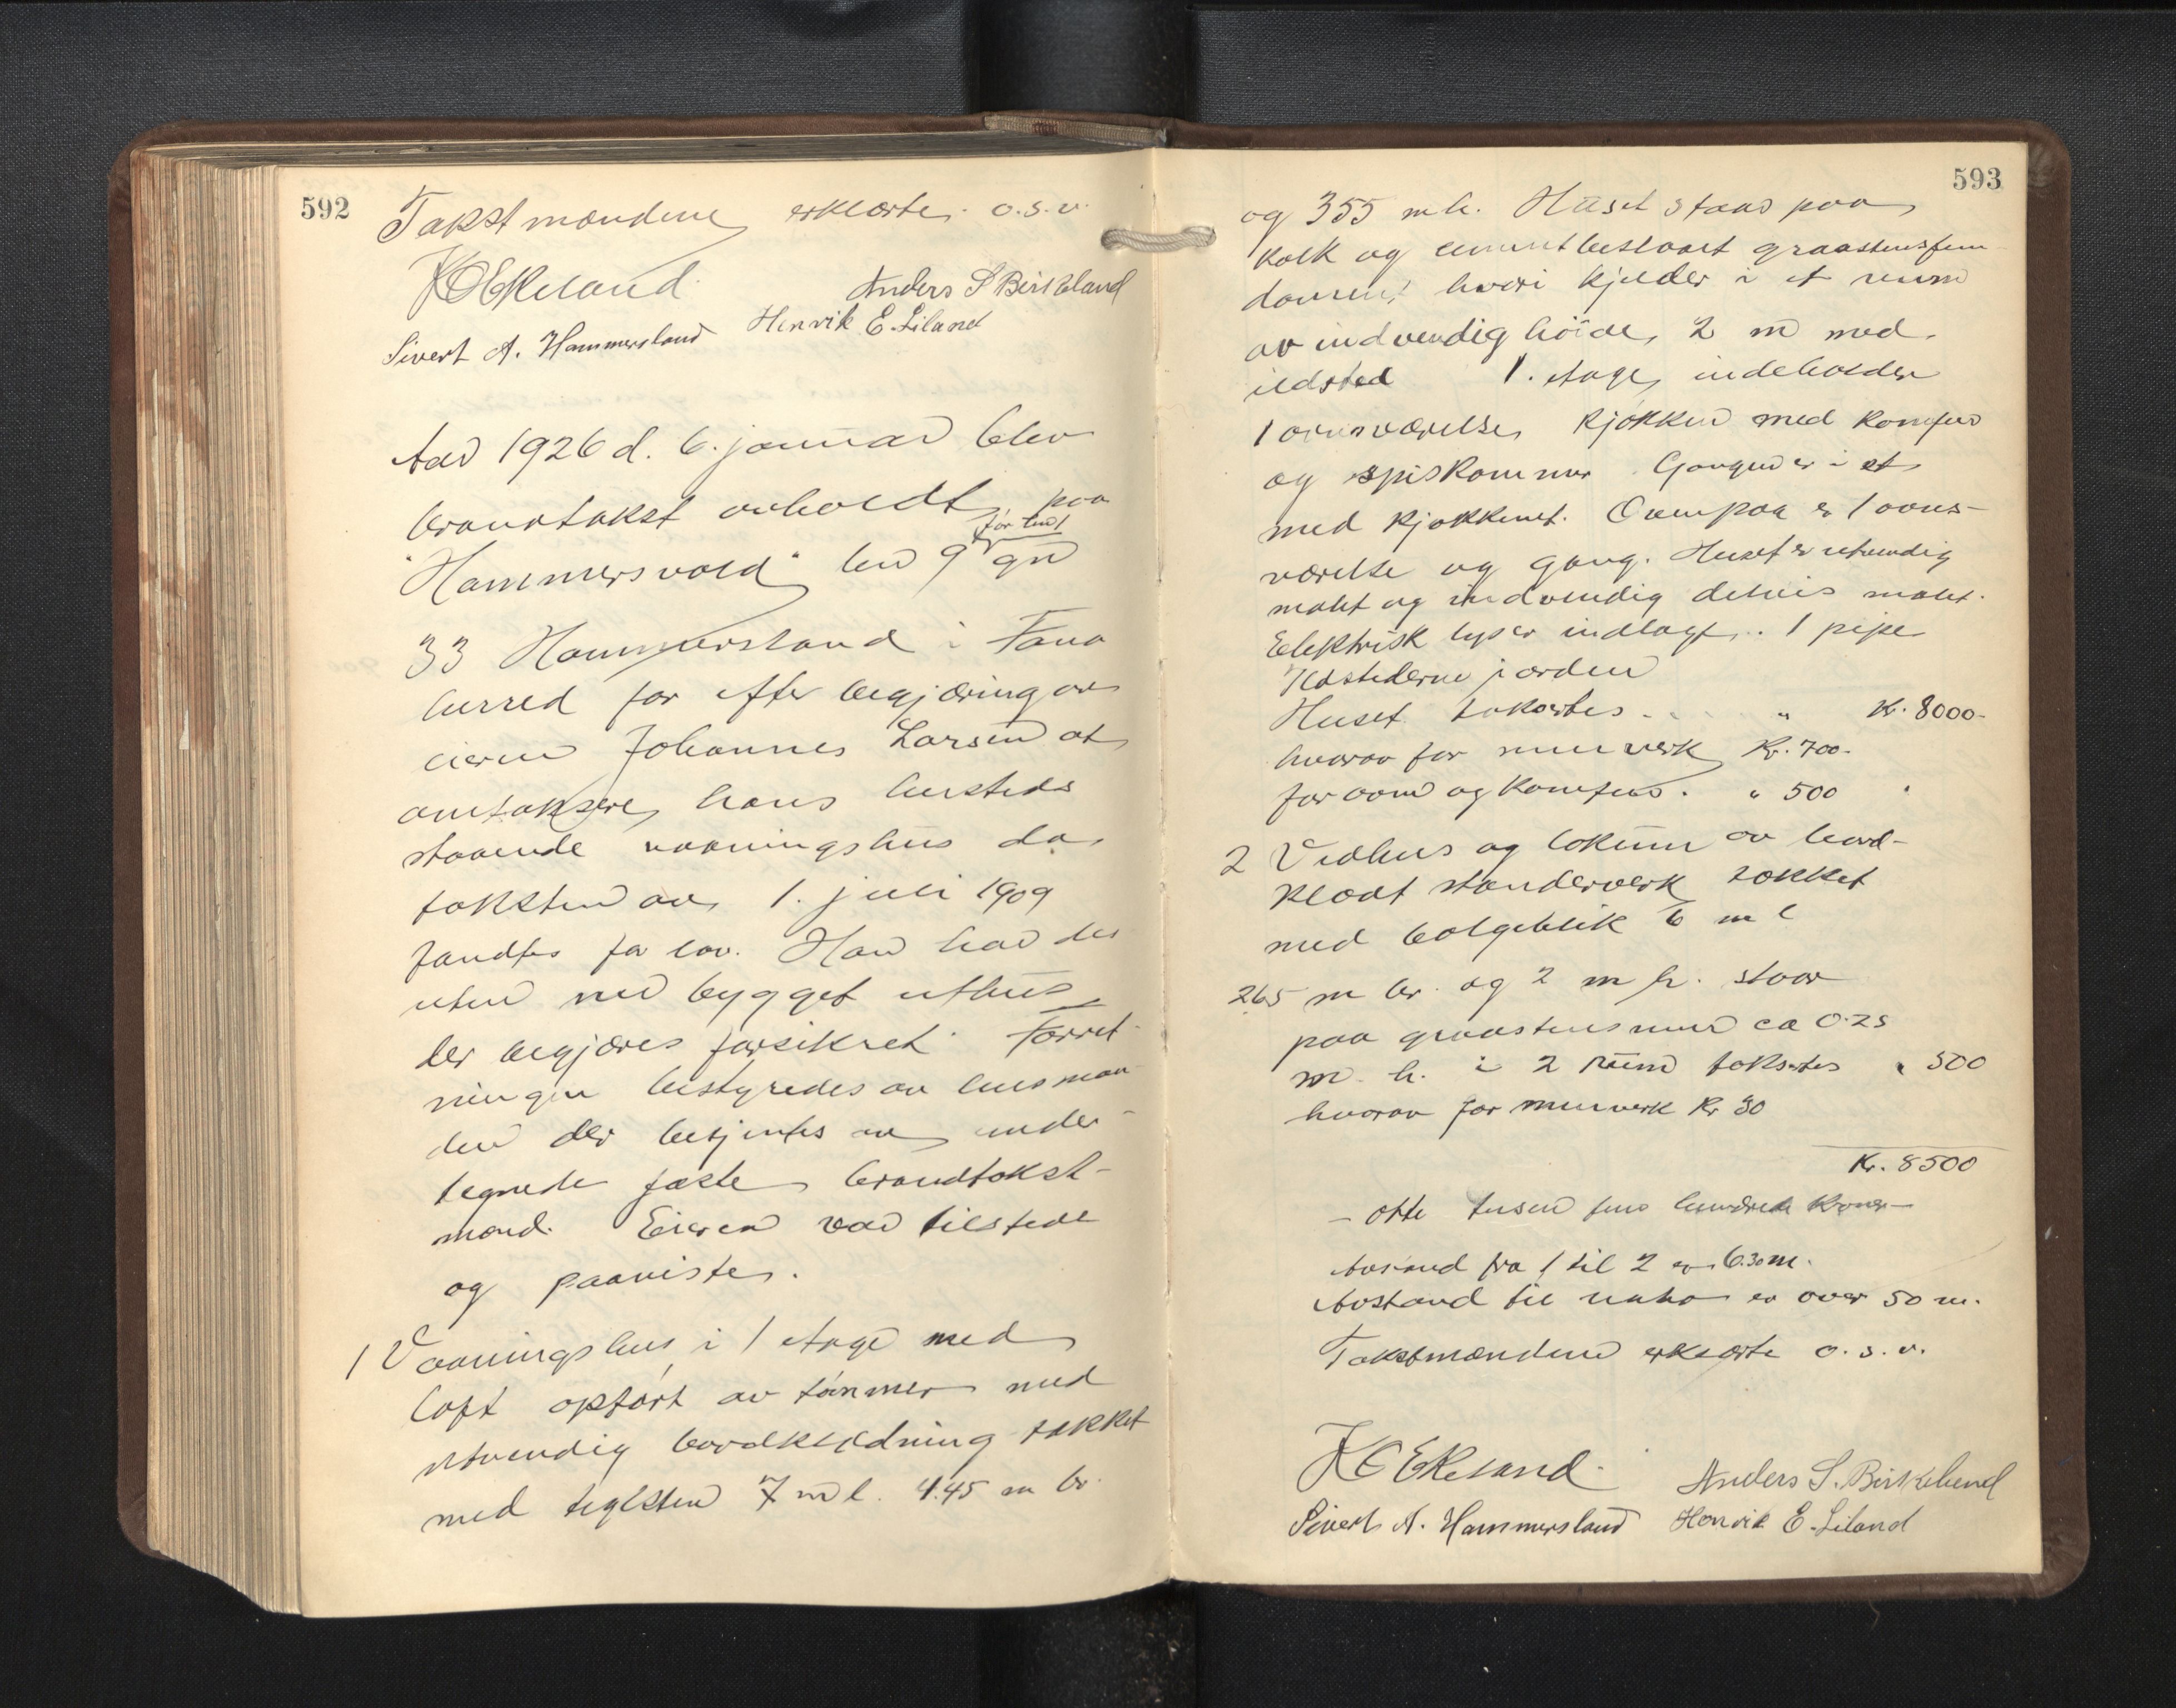 592
Takstmændene erklærte o.s.v.
K O Ekeland Anders S Birkeland
Sivert A. Hammersland Henrik E Liland
Aar 1926 d. 6. januar blev
brandtakst avholdt paa
"Hammersvold" bno 9 gn
33 Hammersland i Fana
herred for efter begjæring av
eieren Johannes Larsen at
omtaksere hans hersteds
staaende vaaningshus da
taksten av 1. juli 1909
fandtes for lav. Han har des
uten nu bygget uthus
der begjæres forsikret. Forret-
ningen bestyredes av lensman-
den der betjentes av under-
tegnede faste brandtakst-
mænd. Eieren var tilstede
og paaviste.
1 Vaaningshus i 1 etage med
loft opført av tømmer med
utvendig bordklædning tækket
med teglsten 7 m l. 4.45 m br.
593
og 355 m h. Huset staar paa
kalk og cementbeslaaet graastensfun-
dament hvori kjelder i et rum
av indvendig høide 2 m med
ildsted 1. etage indeholder
1 ovnsværelse, kjøkken med komfur
og spiskammer. Gangen er i et
med kjøkkenet. Ovenpaa er 1 ovns-
værelse og gang. Huset er utvendig
malt og indvendig delvis malt.
Elektrisk lys er indlagt. 1 pipe
Ildstederne i orden
Huset takertes " Kr. 8000-
hvorav for murverk Kr. 700-
for ovne og komfur. " 500
2 Vedhus og lokum av bord-
klædt stenderverk tækket
med bølgeblik 6 m l
265 m br. og 2 m h. staar
paa graastensmur ca 0.25
m. h. i 2 rum taksertes " 500
hvorav for murverk Kr 30
Kr. 8500
- otte tusen fem hundrede kroner -
Avstand fra 1 til 2 er 6.30 m.
Avstand til nabo er over 50 m.
Takstmændene erklærte o.s.v.
K O Ekeland. Anders S. Birkeland
Sivert A. Hammersland Henrik E. Liland